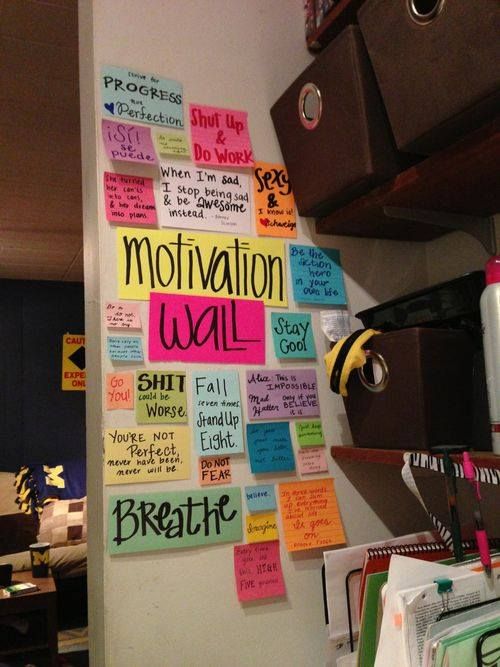 strive for
PROGRESS
not
Perfection
¡Sí!
se
puede
Shut Up
&
Do WORK
She turned
her can'ts
into cans,
& her dreams
into plans.
When I'm sad,
I stop being sad
& be awesome
instead. - Barney
Stinson
Sexy
&
I know it!
MOTIVATION
WALL
Be the
action
hero
in your
own life
Stay
Cool
CAUT
EXPE
ONLY
Go
You!
SHIT
could be
WORSE.
Fall
seven times.
Stand Up
Eight.
Alice: This is
IMPOSSIBLE
Mad Only if you
Hatter BELIEVE
it is
YOU'RE NOT
Perfect,
never have been,
never will be.
DO NOT
FEAR
BREATHE
believe.
Imagine
In three words
I can sum
up everything
I've learned
about life:
it goes
on
Every time
HIGH
FIVE